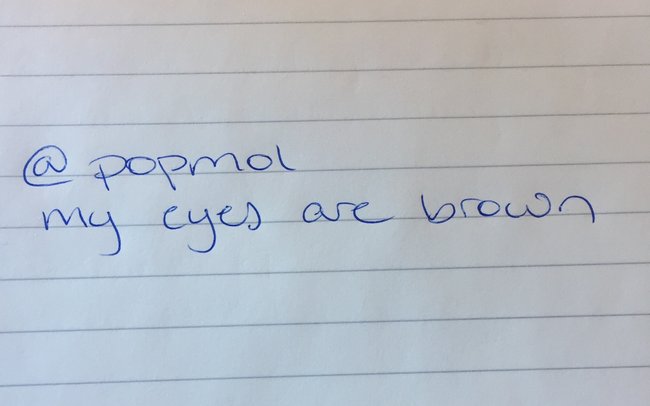 @popmol
my eyes are brown